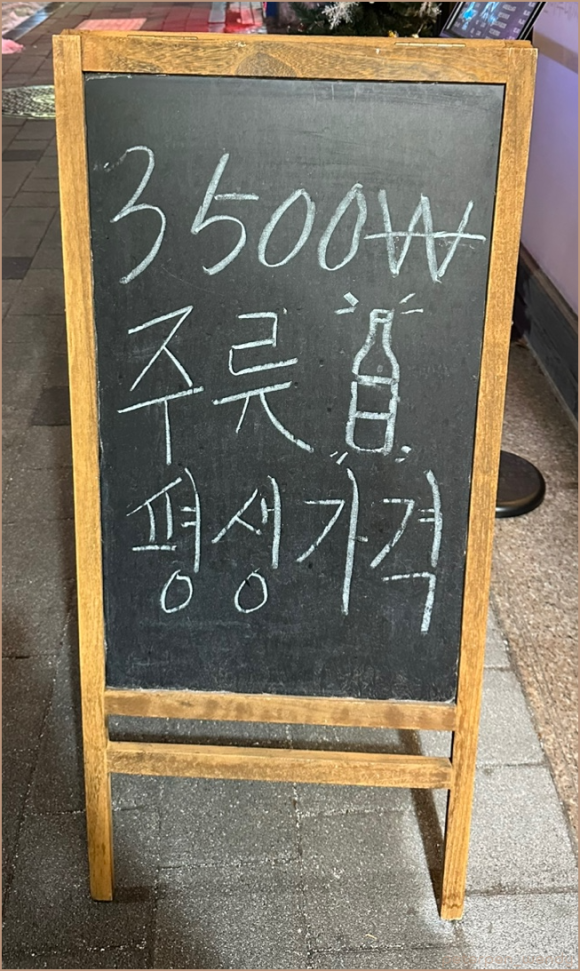 3500₩
주류
평생가격